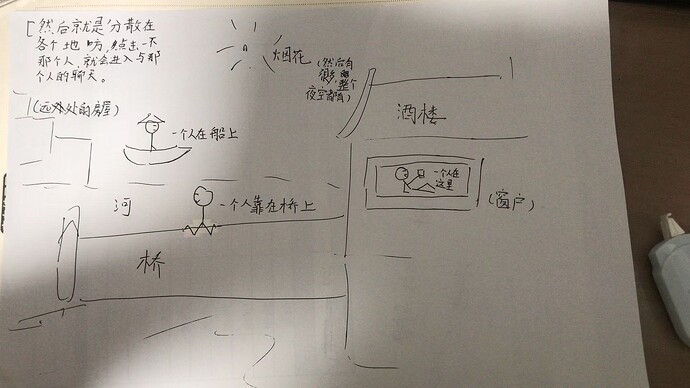 [然后就是分散在
各个地方,点击一下
那个人,就会进入与那
个人的聊天。
烟花
(然后有
很多,整个
夜空都有)
酒楼
(远处的房屋)
一个人在船上
一个人在
这里
(窗户)
河
一个人靠在桥上
桥